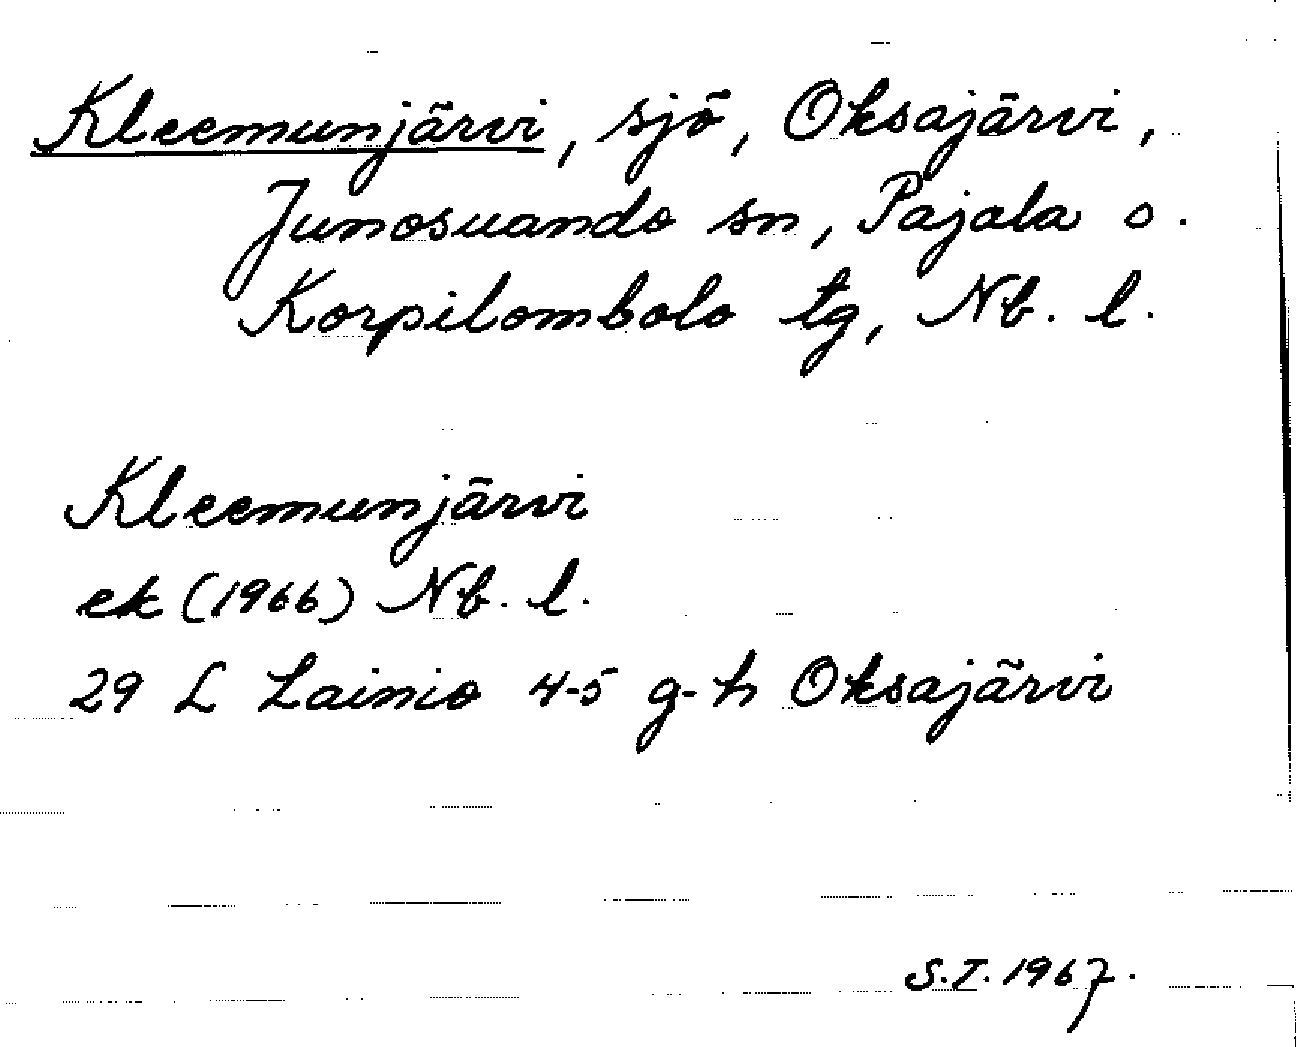 Kleemunjärvi, sjö, Oksajärvi,
Junosuando sn, Pajala o.
Korpilombolo tg, Nb. l.
Kleemunjärvi
ek (1966) Nb. l.
29 L Lainio 4-5 g-h Oksajärvi
S.I. 1967.